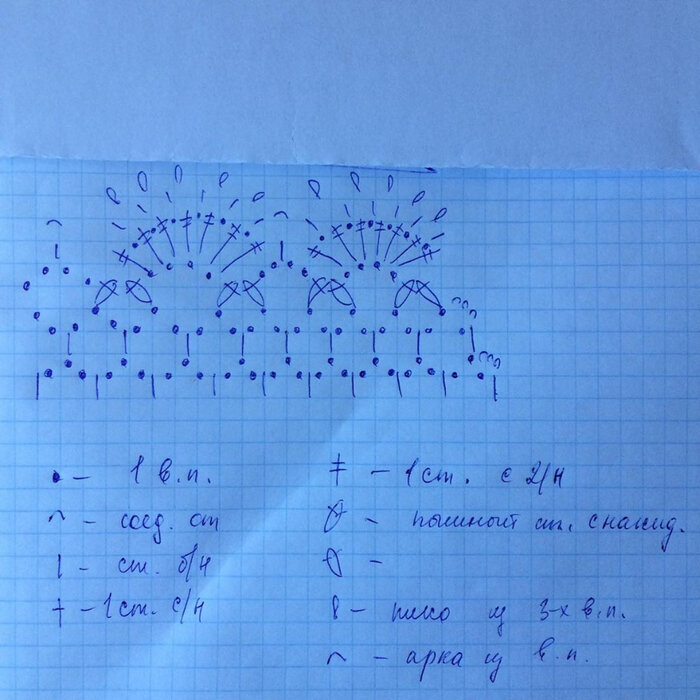 • – 1 в.п.
⌒ – соед. ст
| – ст. б/н
† – 1 ст. с/н
ǂ – 1 ст. с 2/н
– пышный ст. с накид.
–
– пико из 3-х в.п.
⌒ – арка из в.п.